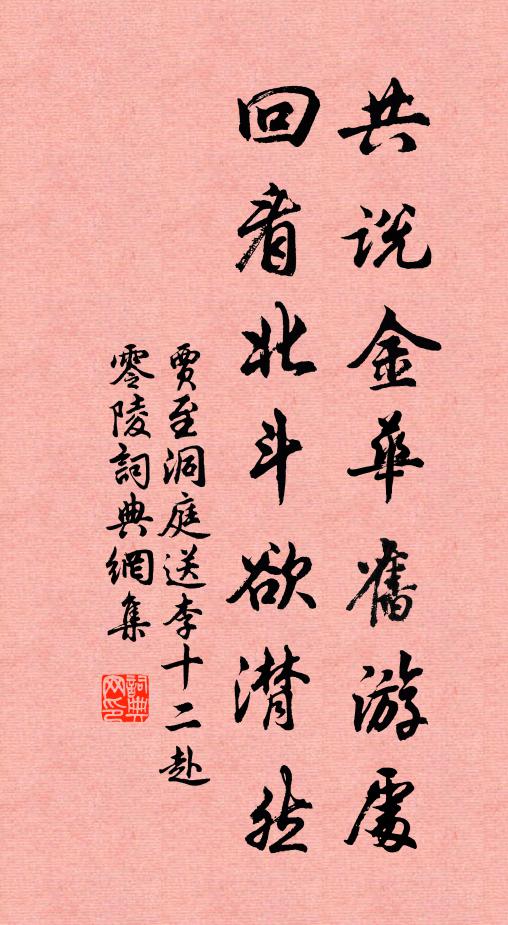 共说金華舊游處
回看北斗欲潸然
賈至洞庭送李十二赴
零陵詞典網集
詞典
网印